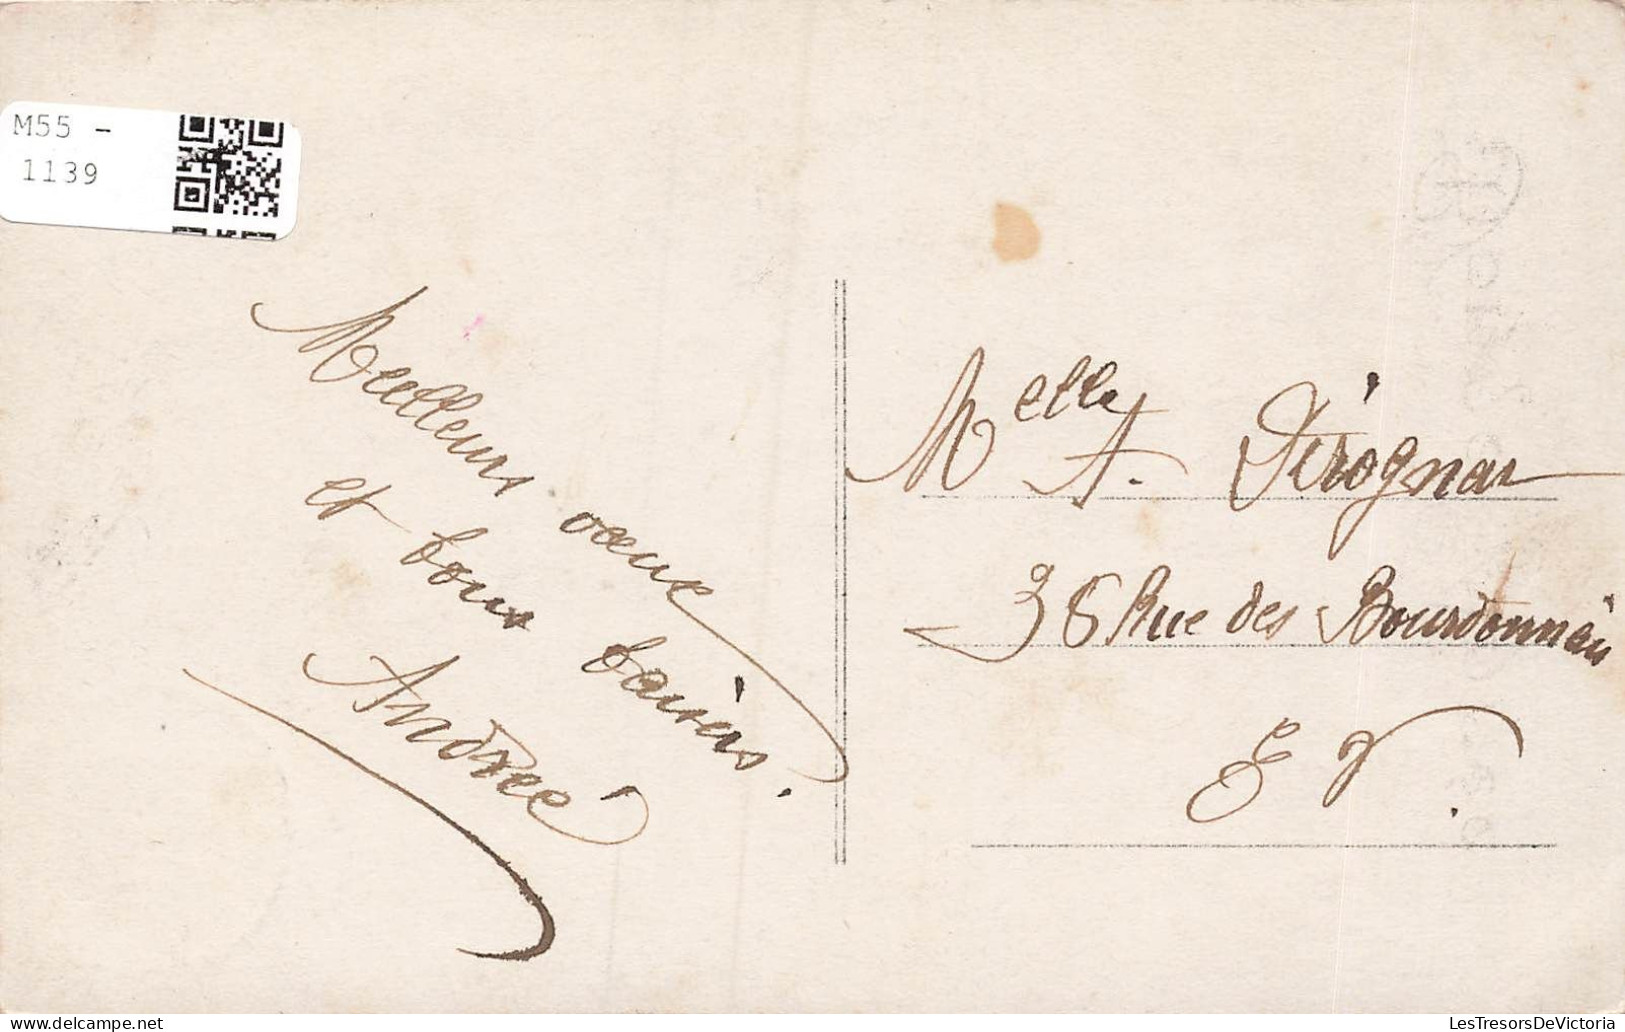 M55 -
1139
Meilleurs vœux
et bons baisers.
Andrée
Melle A. Pérognar
36 Rue des Bourdonnais
E V.
LesTresorsDeVictoria